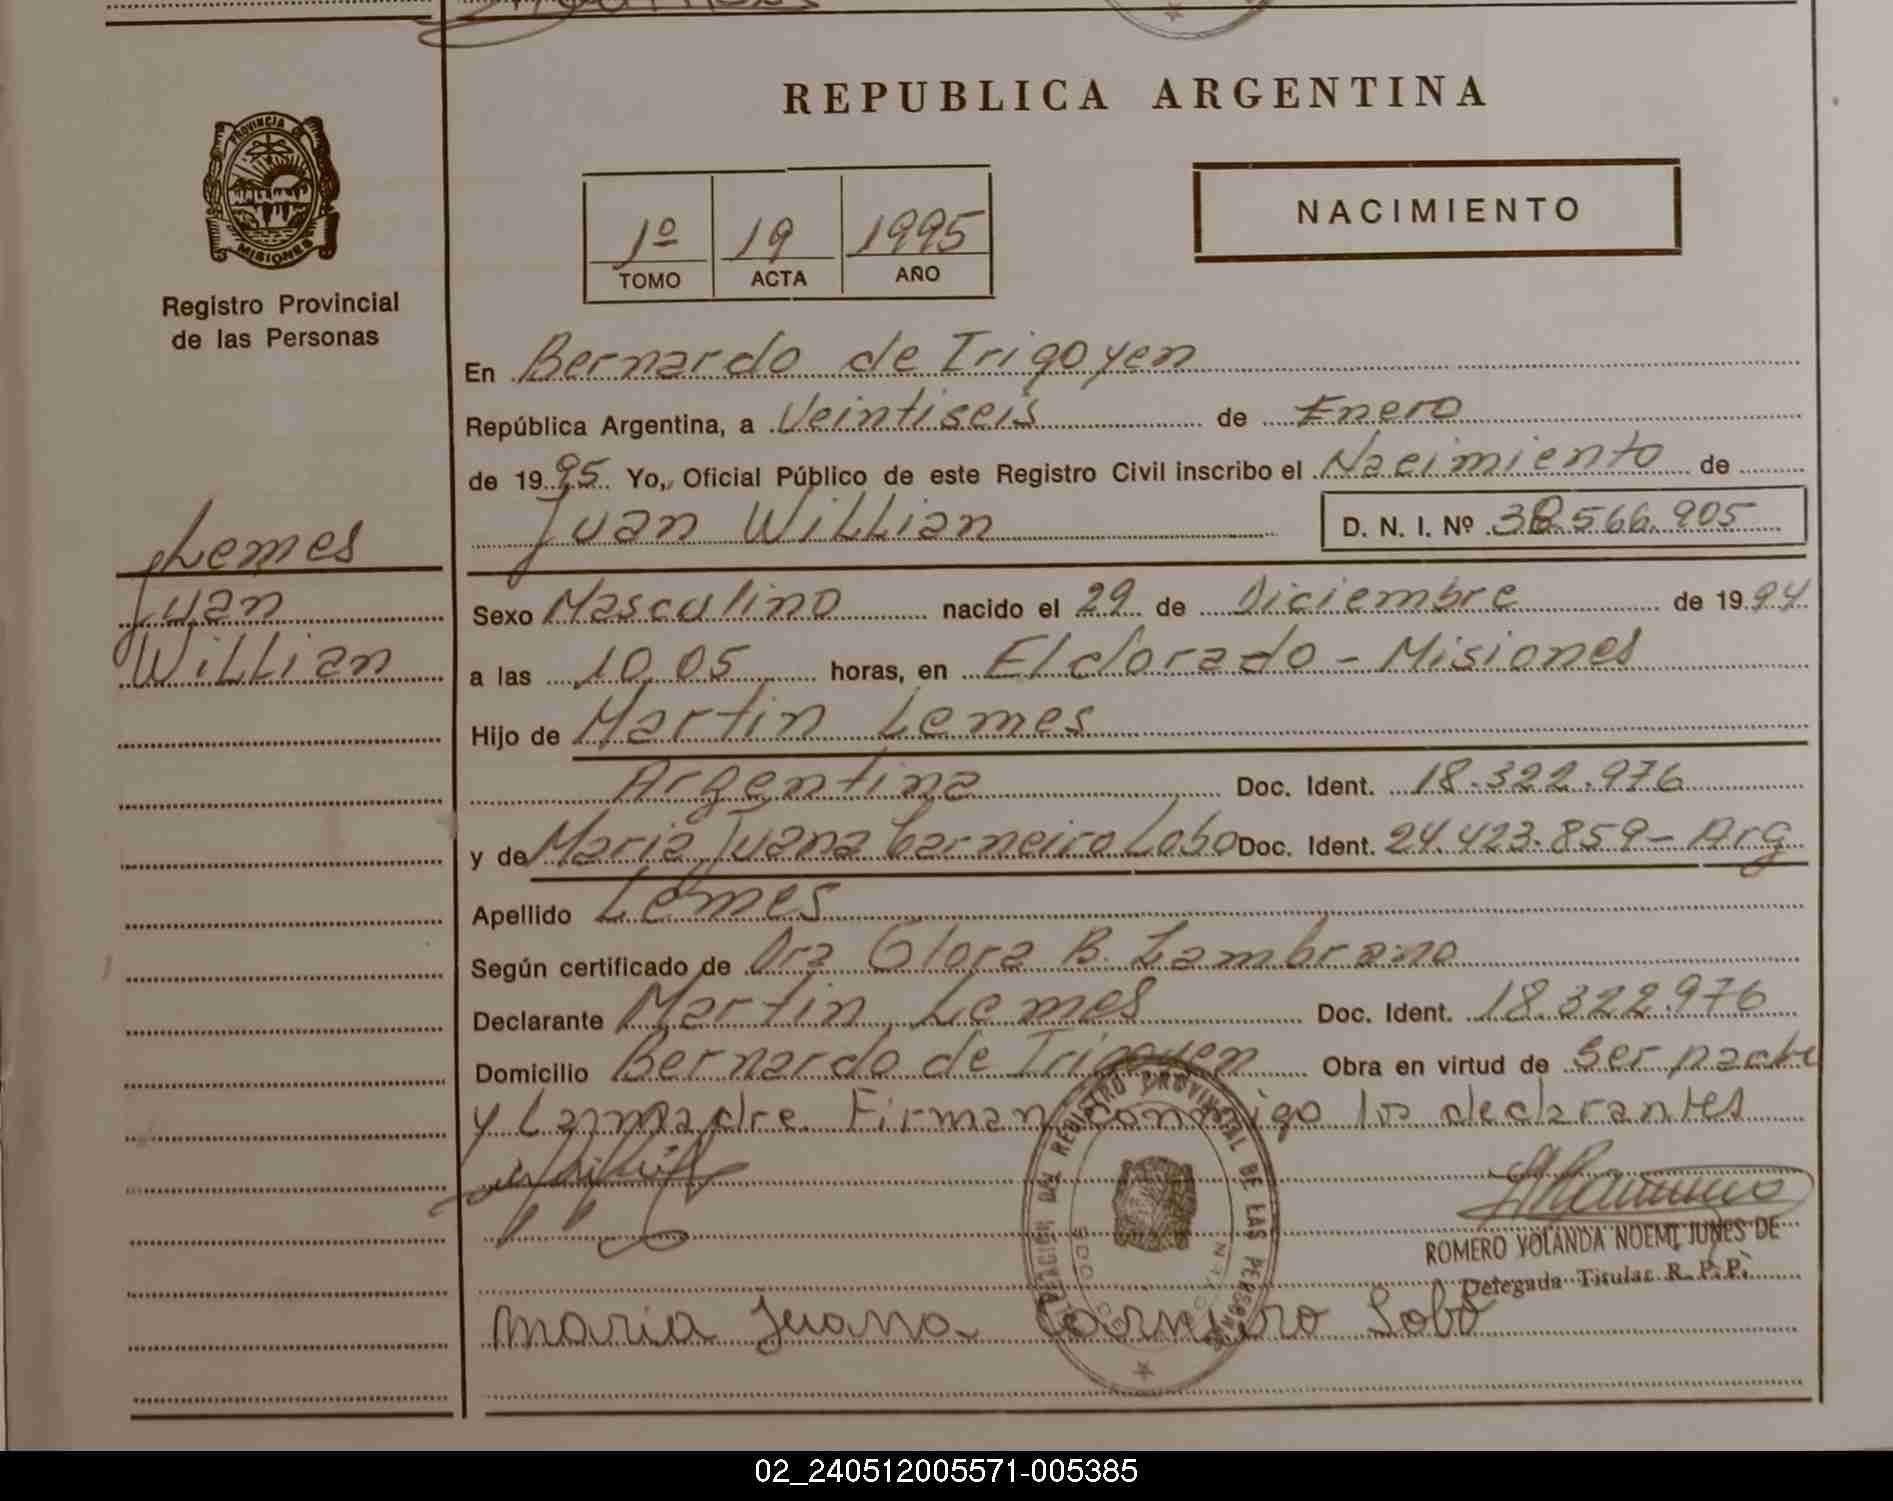 REPUBLICA ARGENTINA
PROVINCIA DE
MISIONES
Registro Provincial
de las Personas
1º 19 1995
TOMO ACTA AÑO
NACIMIENTO
En Bernardo de Irigoyen
República Argentina, a Veintiseis de Enero
de 1995 Yo, Oficial Público de este Registro Civil inscribo el Nacimiento de
Juan Willian D. N. I. Nº 38.566.905
Lemes
Juan
Willian
Sexo Masculino nacido el 29 de Diciembre de 1994
a las 10,05 horas, en Eldorado - Misiones
Hijo de Martin Lemes
Argentina Doc. Ident. 18.322.976
y de Maria Juana Carneiro Lobo Doc. Ident. 24.423.859 - Arg
Apellido Lemes
Según certificado de Dra Glora B. Zambrano
Declarante Martin Lemes Doc. Ident. 18.322.976
Domicilio Bernardo de Irigoyen Obra en virtud de Ser padre
y La madre Firman conmigo los declarantes
REGISTRO PROVINCIAL DE LAS PERSONAS
ROMERO YOLANDA NOEMI JUNES DE
Delegada Titular R. P. P.
maria Juana Carneiro Lobo
02_240512005571-005385